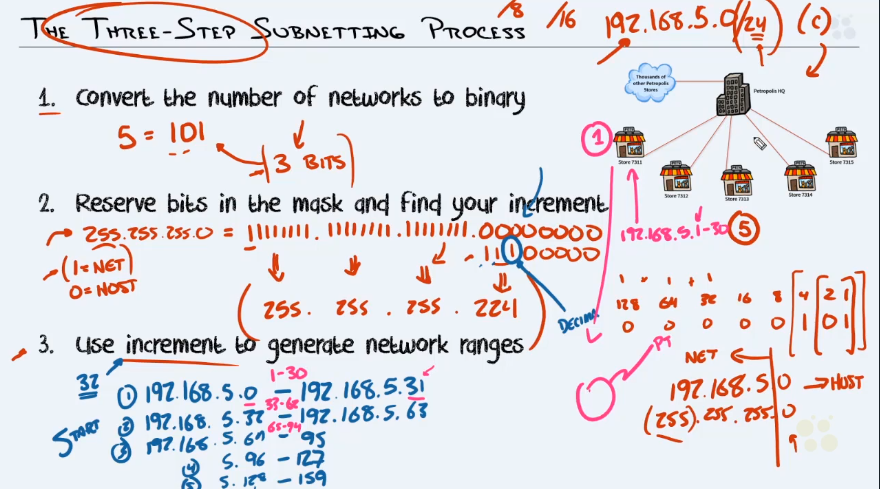 THE THREE-STEP SUBNETTING PROCESS
/8 /16 192.168.5.0/24 (C)
1. Convert the number of networks to binary
5 = 101
3 BITS
2. Reserve bits in the mask and find your increment
255.255.255.0 = 11111111.11111111.11111111.00000000
11100000
(1=NET)
0=HOST
(255.255.255.224)
DECIMA
3. Use increment to generate network ranges
32
START
1-30
① 192.168.5.0 - 192.168.5.31
33-62
② 192.168.5.32 - 192.168.5.63
65-94
③ 192.168.5.64 - 95
④ 5.96 - 127
⑤ 5.128 - 159
Thousands of
other Petropolis
Stores
Petropolis HQ
①
Store 7311
Store 7312
Store 7313
Store 7314
Store 7315
192.168.5.1-30
⑤
1 1 1
128 64 32 16 8 4 2 1
0 0 0 0 0 1 0 1
PT
NET
192.168.5 0 → HOST
(255).255.255.0